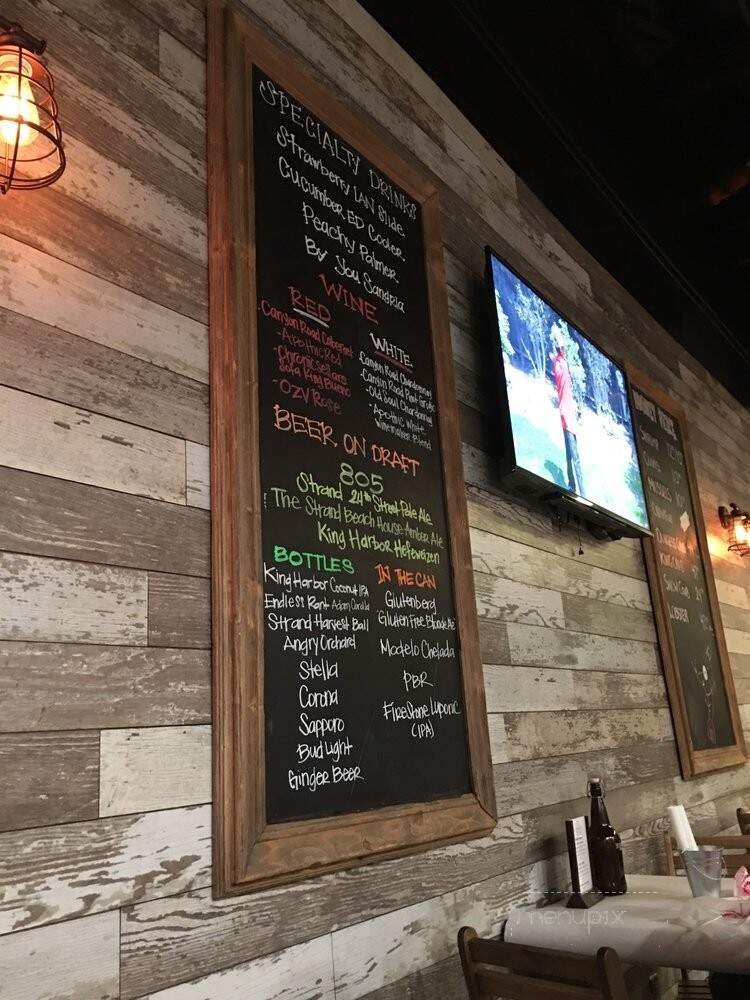 SPECIALTY DRINKS
Strawberry IAN Slide
Cucumber ED Cooler
Peachy Palmer
By You Sangria
WINE
RED
-Canyon Road Cabernet
-Apothic Red
-Chronic Cellars
Sofa King Bueno
-OZV Rose
WHITE
-Canyon Road Chardonnay
-Canyon Road Pinot Grigio
-Old Soul Chardonnay
-Apothic White
Winemaker Blend
BEER ON DRAFT
805
Strand 24th Street Pale Ale
The Strand Beach House Amber Ale
King Harbor Hefeweizen
BOTTLES
King Harbor Coconut IPA
Endless Rant
Strand Harvest Ball
Angry Orchard
Stella
Corona
Sapporo
Bud Light
Ginger Beer
IN THE CAN
Glutenberg
"Gluten Free Blonde Ale"
Modelo Chelada
PBR
FireStone Luponic
(IPA)
LOBSTER
menupix